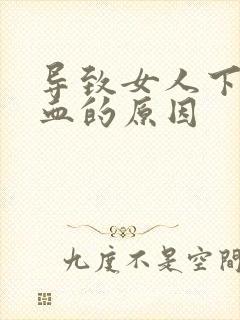 导致女人下
血的原因
九度不是空間